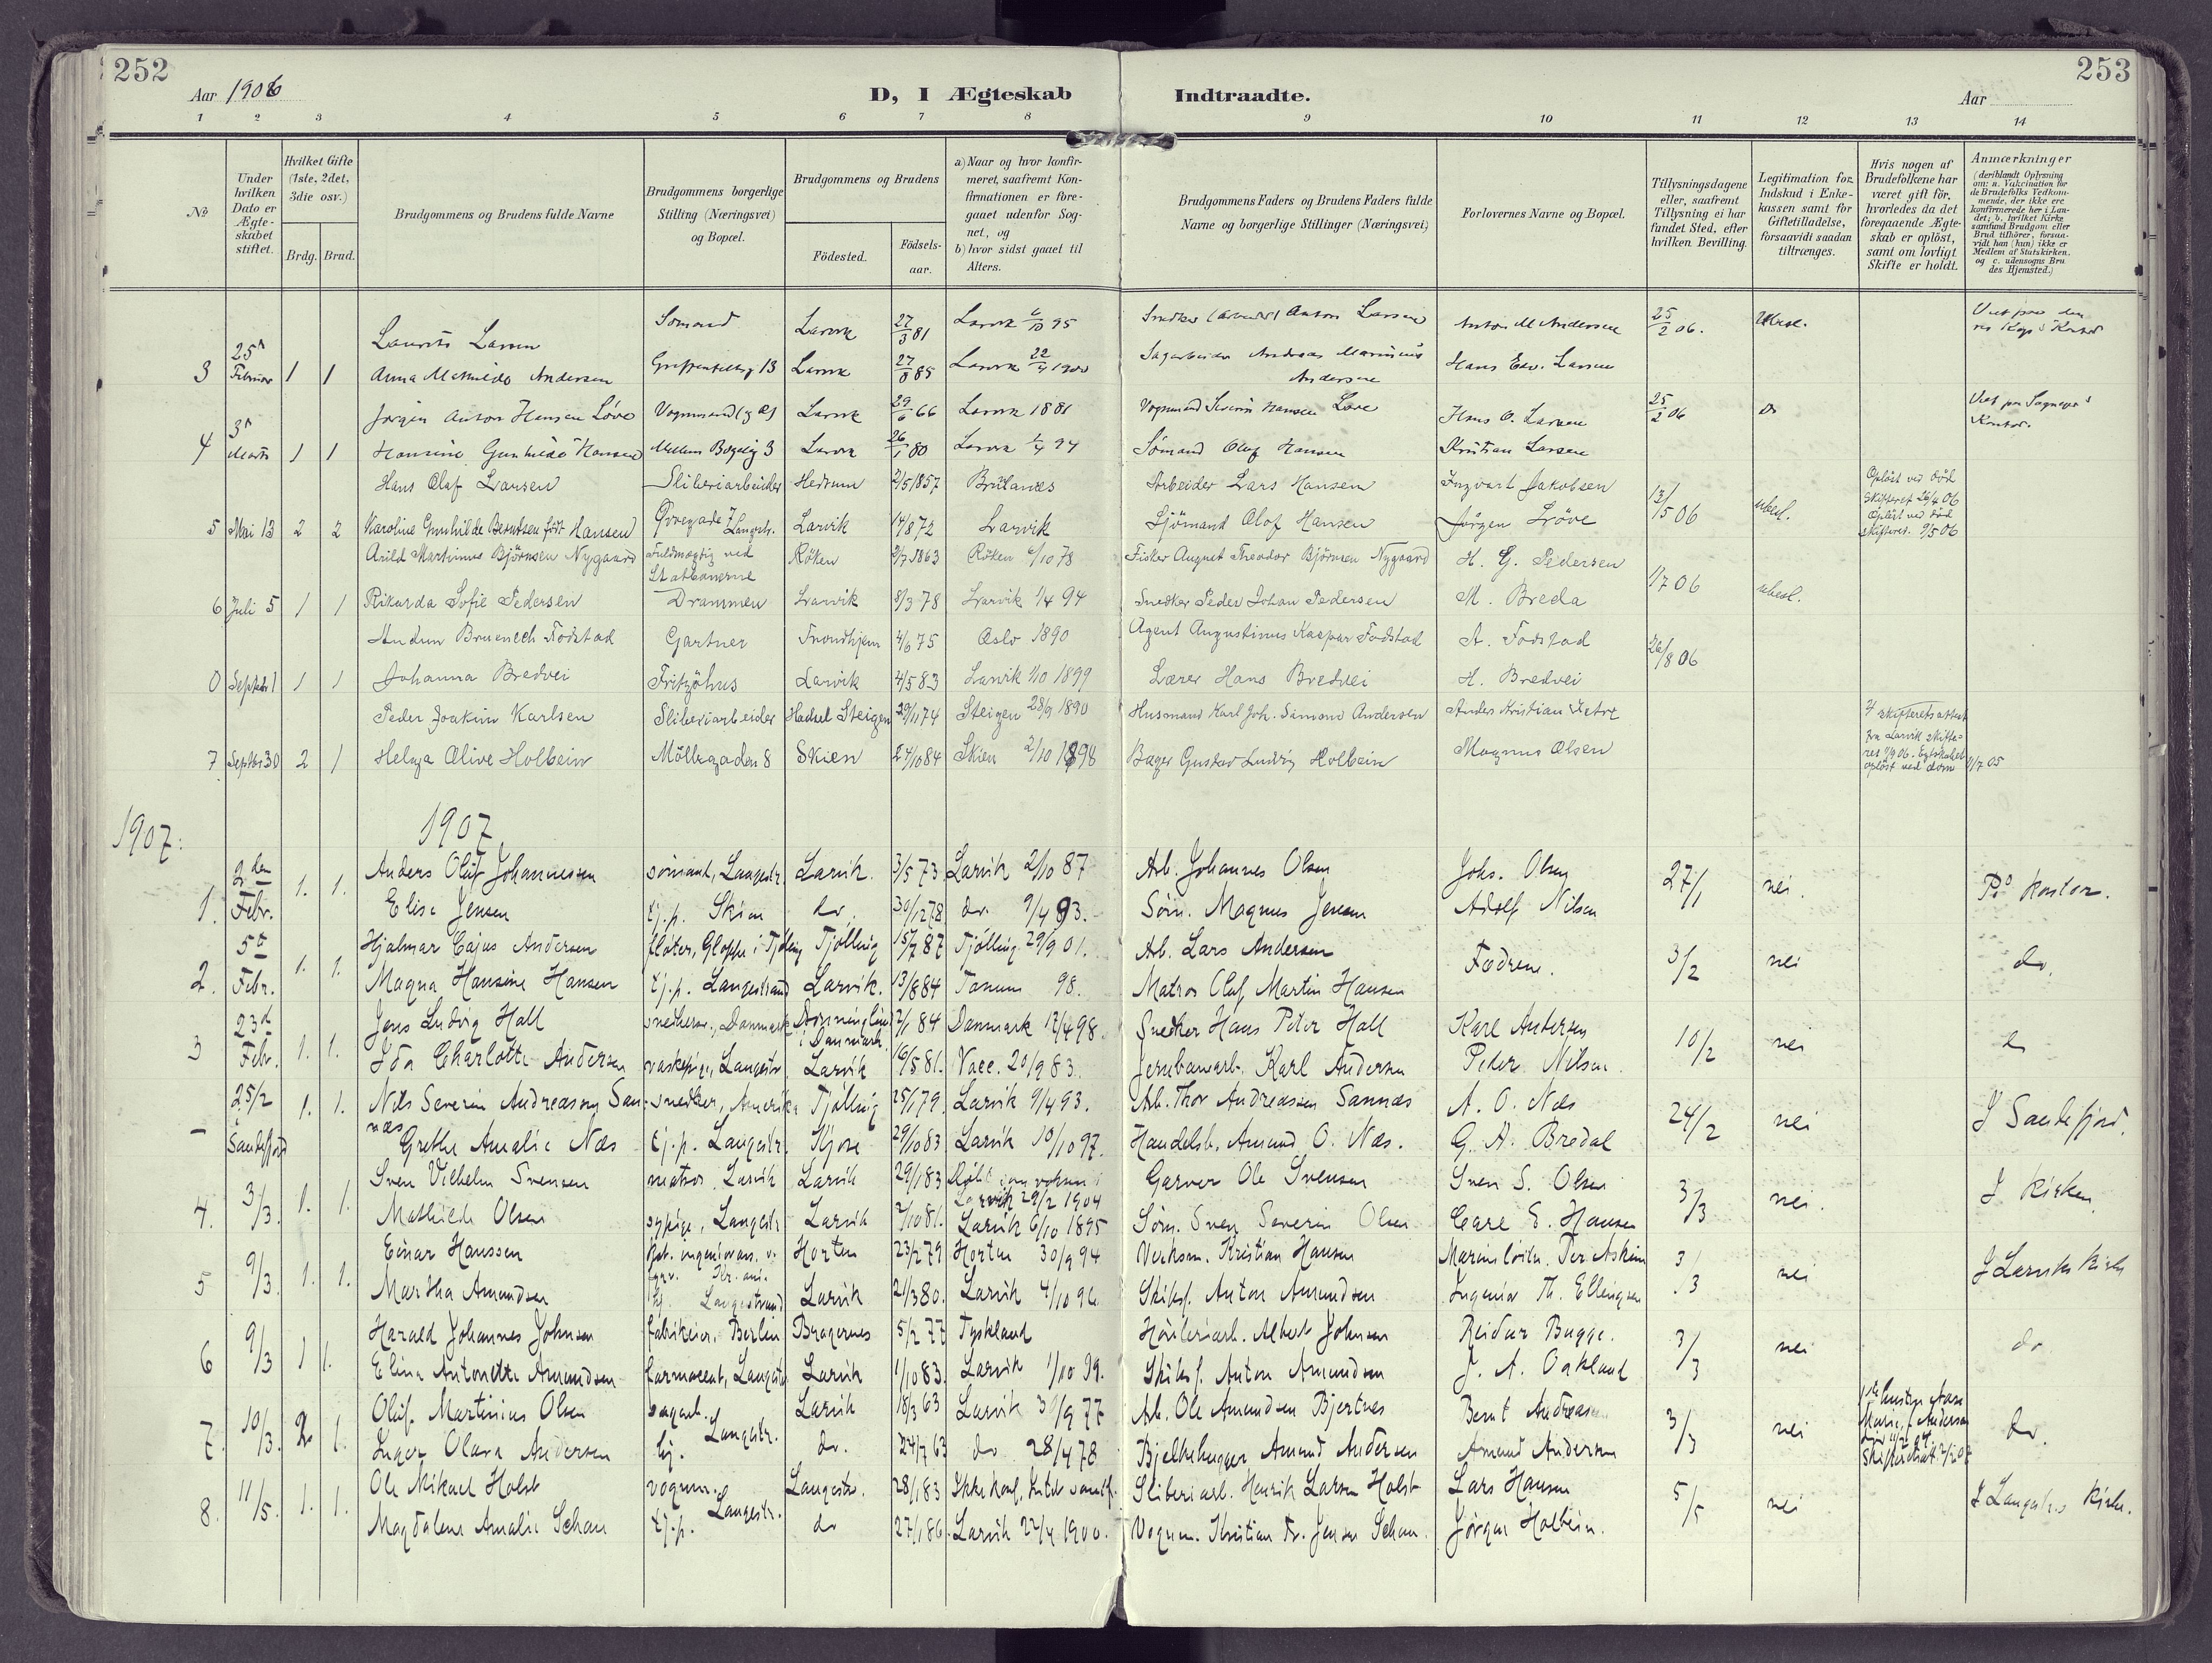 252
Aar 1906
D, I Ægteskab Indtraadte.
Aar
253
1 2 3 4 5 6 7 8 9 10 11 12 13 14
No
Under hvilken Dato er Ægteskabet stiftet.
Hvilket Gifte (1ste, 2det, 3die osv.)
Brdg. Brud.
Brudgommens og Brudens fulde Navne
Brudgommens borgerlige Stilling (Næringsvei) og Bopæl.
Brudgommens og Brudens
Födested.
Födsels-aar.
a) Naar og hvor konfirmeret, saafremt Konfirmationen er foregaaet udenfor Sognet, og
b) hvor sidst gaaet til Alters.
Brudgommens Faders og Brudens Faders fulde Navne og borgerlige Stillinger (Næringsvei)
Forlovernes Navne og Bopæl.
Tillysningsdagene eller, saafremt Tillysning ei har fundet Sted, efter hvilken Bevilling.
Legitimation for Indskud i Enkekassen samt for Giftetilladelse, forsaavidt saadan tiltrænges.
Hvis nogen af Brudefolkene har været gift för, hvorledes da det foregaaende Ægteskab er oplöst, samt om lovligt Skifte er holdt.
Anmærkninger (deriblandt Oplysning om: a. Vakcination for de Brudefolks Vedkommende, der ikke ere konfirmerede her i Landet; b. hvilket Kirkesamfund Brudgom eller Brud tilhörer, forsaavidt han (hun) ikke er Medlem af Statskirken, og c. udensogns Brudes Hjemsted.)
Laurits Larsen Sömand Larvik 27/3 81 Larvik 95 Anton Larsen Anton M Andersen 25/2 06.
3 25d Februar 1 1 Anna Mathilde Andersen 13 Larvik 27/8 85 Larvik 22/4 1900 Sagarbeider Andreas Marinius Andersen Hans Edv. Larsen
Jörgen Anton Hansen Löve Vognmand Larvik 29/6 66 Larvik 1881 Vognmand Severin Hansen Löve Hans O. Larsen 25/2 06 do
4 3d Marts 1 1 Hansine Gunhilde Hansen 3 Larvik 26/1 80 Larvik 94 Sömand Olaf Hansen Kristian Larsen
Hans Olaf Larsen Sliberiarbeider Hedrum 2/5 1857 Brunlanes Arbeider Lars Hansen Ingvart Jakobsen 13/5 06 ubesl. Oplöst ved död Skifteret 26/4 06
5 Mai 13 2 2 Karoline Gunhilde Berntsen född Hansen Övregade 7 Langestr. Larvik 14/8 72 Larvik Sjömand Olof Hansen Jörgen Löve Oplöst ved död skifteret. 9/5 06
Arild Martinius Björnsen Nygaard Fuldmægtig ved Statbanerne Röken 2/7 1863 Röken 6/10 78 Fisker August Theodor Björnsen Nygaard H. G. Pedersen 1/7 06 ubesl.
6 Juli 5 1 1 Rikarda Sofie Pedersen Drammen Larvik 8/3 78 Larvik 1/4 94 Snedker Peder Johan Pedersen M. Breda
Audun Bruenech Fodstad Gartner Trondhjem 4/6 75 Oslo 1890 Agent Augustinus Kaspar Fodstad A. Fodstad 26/8 06
0 Septebr 1 1 1 Johanna Bredvei Fritzöhus Larvik 4/5 83 Larvik 1/10 1899 Lærer Hans Bredvei H. Bredvei
Peder Joakim Karlsen Sliberiarbeider Hadsel Steigen 29/11 74 Steigen 28/9 1890 Husmand Karl Joh. Simon Andersen Anders Kristian
7 Septbr 30 2 1 Helga Olive Holbein Möllegaden 8 Skien 24/10 84 Skien 2/10 1898 Bager Gustav Ludvig Holbein Magnus Olsen fra Larvik skifteret 06. Egteskabet oplöst ved dom 1/7 05
1907:
1907
2den Anders Oluf Johannesen sömand, Langestr. Larvik. 3/5 73 Larvik 2/10 87 Arb. Johannes Olsen Johs. Olsen 27/1 nei. Pd kontor.
1. Febr. 1. 1. Elise Jensen tj.p. Skien do. 30/12 78 do. 9/4 93. Söm. Magnus Jensen Adolf Nilsen
5te Hjalmar Cajus Andersen fløter, Gloppe i Tjölling Tjölling 15/7 87 Tjölling 29/9 01. Arb. Lars Andersen Fædrene. 3/2 nei do.
2. Febr. 1. 1. Magna Hansine Hansen tj.p. Langestrand Larvik. 13/8 84 Tanum 98. Matros Oluf Martin Hansen
23d Jens Ludvig Hall snedker, Danmark i Danmark 84 Danmark 17/4 98. Snedker Hans Peter Hall Karl Andersen 10/2 nei do
3 Febr. 1. 1. Ida Charlotte Andersen vaskepige, Langestr. Larvik 16/5 81. Vacc. 20/9 83. Jernbanearb. Karl Andersen Peder Nilsen.
25/2 1. 1. Nils Severin Andreassen Sannæs Snedker, Amerika Tjölling 25/1 79. Larvik 9/4 93. Arb. Thor Andreasen Sannæs A. O. Næs 24/2 nei I Sandefjord.
– Sandefjord Grethe Amalie Næs tj.p. Langestr. Kjose 29/10 83 Larvik 10/10 97. Handelsb. Amund O. Næs. G. A. Bredal
Sven Vilhelm Svensen matros Larvik Larvik 29/1 83 Döbt som voksen i Larvik 29/2 1904 Garver Ole Svensen Sven S. Olsen 3/3 nei. I kirken.
4. 3/3. 1. 1. Mathilde Olsen sypige, Langestr. Larvik 2/10 81. Larvik 6/10 1895 Söm. Sven Severin Olsen Carl E. Hansen
Einar Hanssen Horten 23/2 79 Horten 30/9 94 Verksm. Kristian Hansen Marinelöitn. Per Askim 3/3 nei I Larviks kirke
5 9/3. 1. 1. Martha Amundsen Langestrand Larvik 21/3 80. Larvik 4/10 96. Skibsf. Anton Amundsen Ingeniör Th. Ellingsen
Harald Johannes Johnsen fabrikeier, Berlin Bragernes 5/2 77 Tyskland Hövleriarb. Albert Johnsen Reidar Bugge. 3/3 nei do
6 9/3 1 1. Elina Antonette Amundsen farmaceut, Langestr. Larvik 1/10 83. Larvik 1/10 99. Skibsf. Anton Amundsen J. A. Oakland
Oluf Martinius Olsen sagarb. Larvik 18/3 63 Larvik 30/9 77 Arb. Ole Amundsen Bjertnes Bernt Andreasen 3/3 nei do.
7. 10/3. 2 1. Inger Olava Andersen tj. Langestr. do. 24/7 63 do 28/4 78 Bjelkehugger Amund Andersen Amund Andersen
Ole Mikael Holst vognm. Langestr. 28/1 83 Ikke konf. Sliberiarb. Henrik Larsen Holst Lars Hansen 5/5 nei I Langestrs kirke.
8. 11/5. 1. 1. Magdalene Amalie Schau tj.p. Langestr. do 27/1 86. Larvik 22/4 1900. Vognm. Kristian Fr. Jensen Schau. Jörgen Holbein.